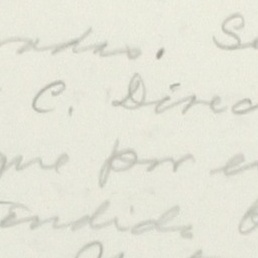 radas. S
C. Direc
que por e
endida